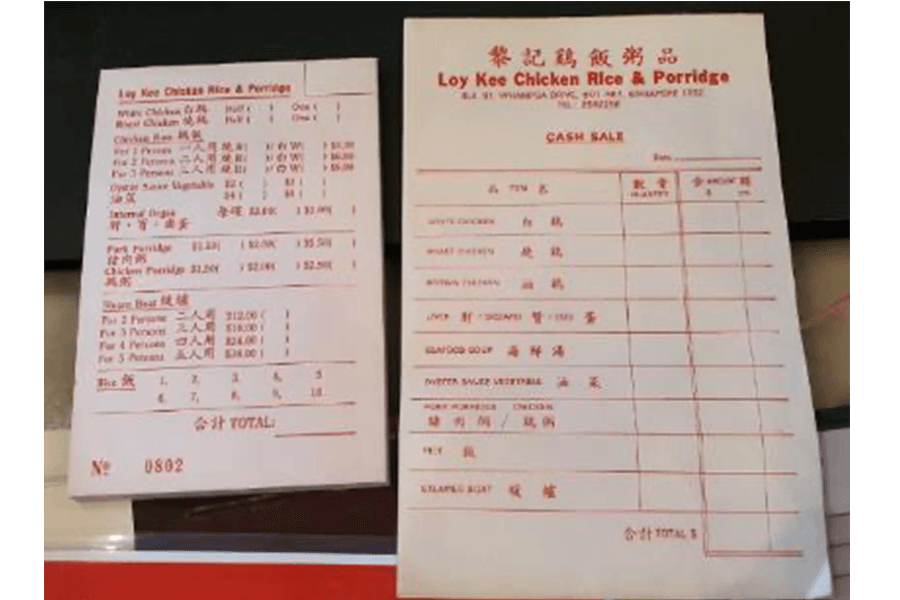 Loy Kee Chicken Rice & Porridge
White Chicken 白鷄 Half ( ) One ( )
Roast Chicken 燒鷄 Half ( ) One ( )
Chicken Rice 鷄飯
For 1 Person 一人用
For 2 Persons 二人用
For 3 Persons 三人用
Oyster Sauce Vegetable $2 ( ) $3 ( )
油菜 $4 ( )
Internal Organ $2.00( )
Pork Porridge ) $2.00(
猪肉粥
Chicken Porridge $1.50( ) $2.00( ) $2.50( )
鷄粥
Steam Boat 暖爐
For 2 Persons 二人用 $12.00 ( )
For 3 Persons 三人用
For 4 Persons 四人用 $24.00 ( )
For 5 Persons 五人用
Rice 飯 1, 2, 3, 4, 5
6, 7, 8, 9, 10
合計 TOTAL:
Nº 0802
黎記鷄飯粥品
Loy Kee Chicken Rice & Porridge
BLK 91, WHAMPOA DRIVE, SINGAPORE 1232
TEL:
CASH SALE
Date
品 ITEM 名 數量 QUANTITY 金 AMOUNT 額
$ cts.
WHITE CHICKEN 白鷄
ROAST CHICKEN 燒鷄
CHICKEN 油鷄
LIVER 肝 · GIZZARD · EGG 蛋
SEAFOOD SOUP 海鮮湯
OYSTER SAUCE VEGETABLE 油菜
PORK PORRIDGE CHICKEN
豬肉粥 / 鷄粥
RICE 飯
STEAMED BOAT 暖爐
合計 TOTAL $